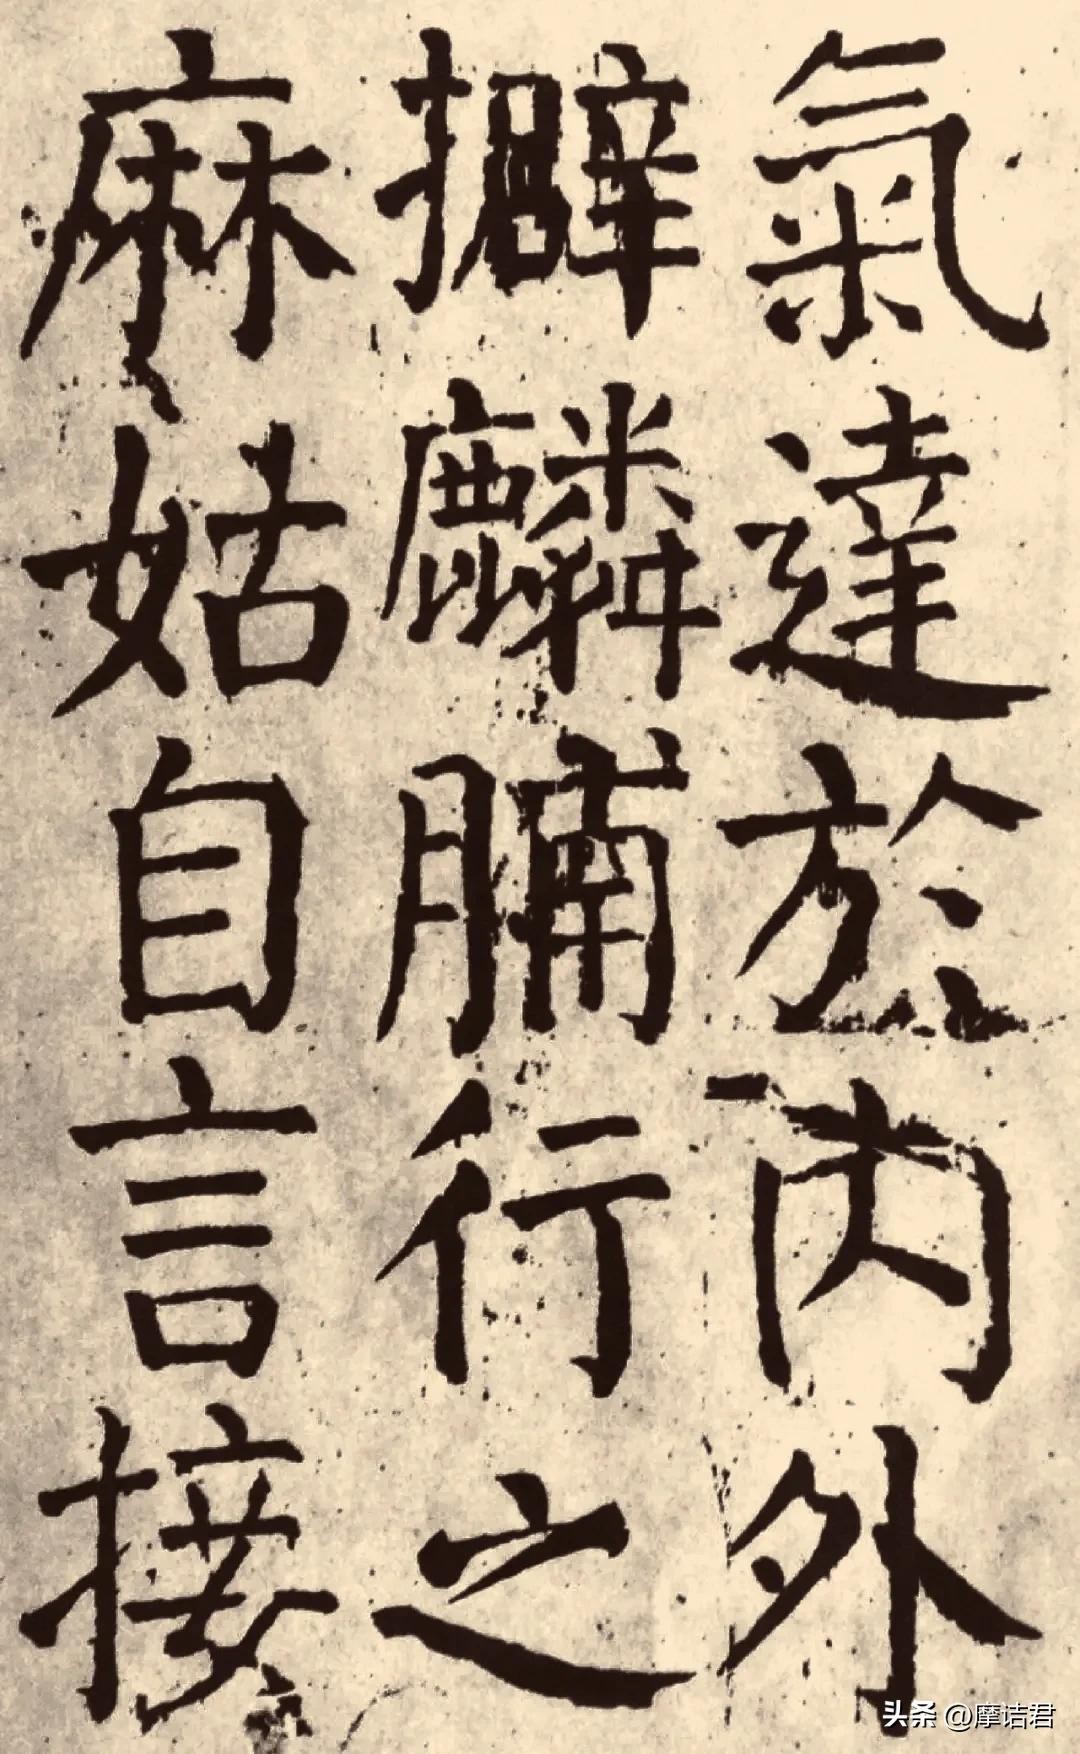 氣達於内外
擗麟脯行之
麻姑自言接
头条 @摩诘君